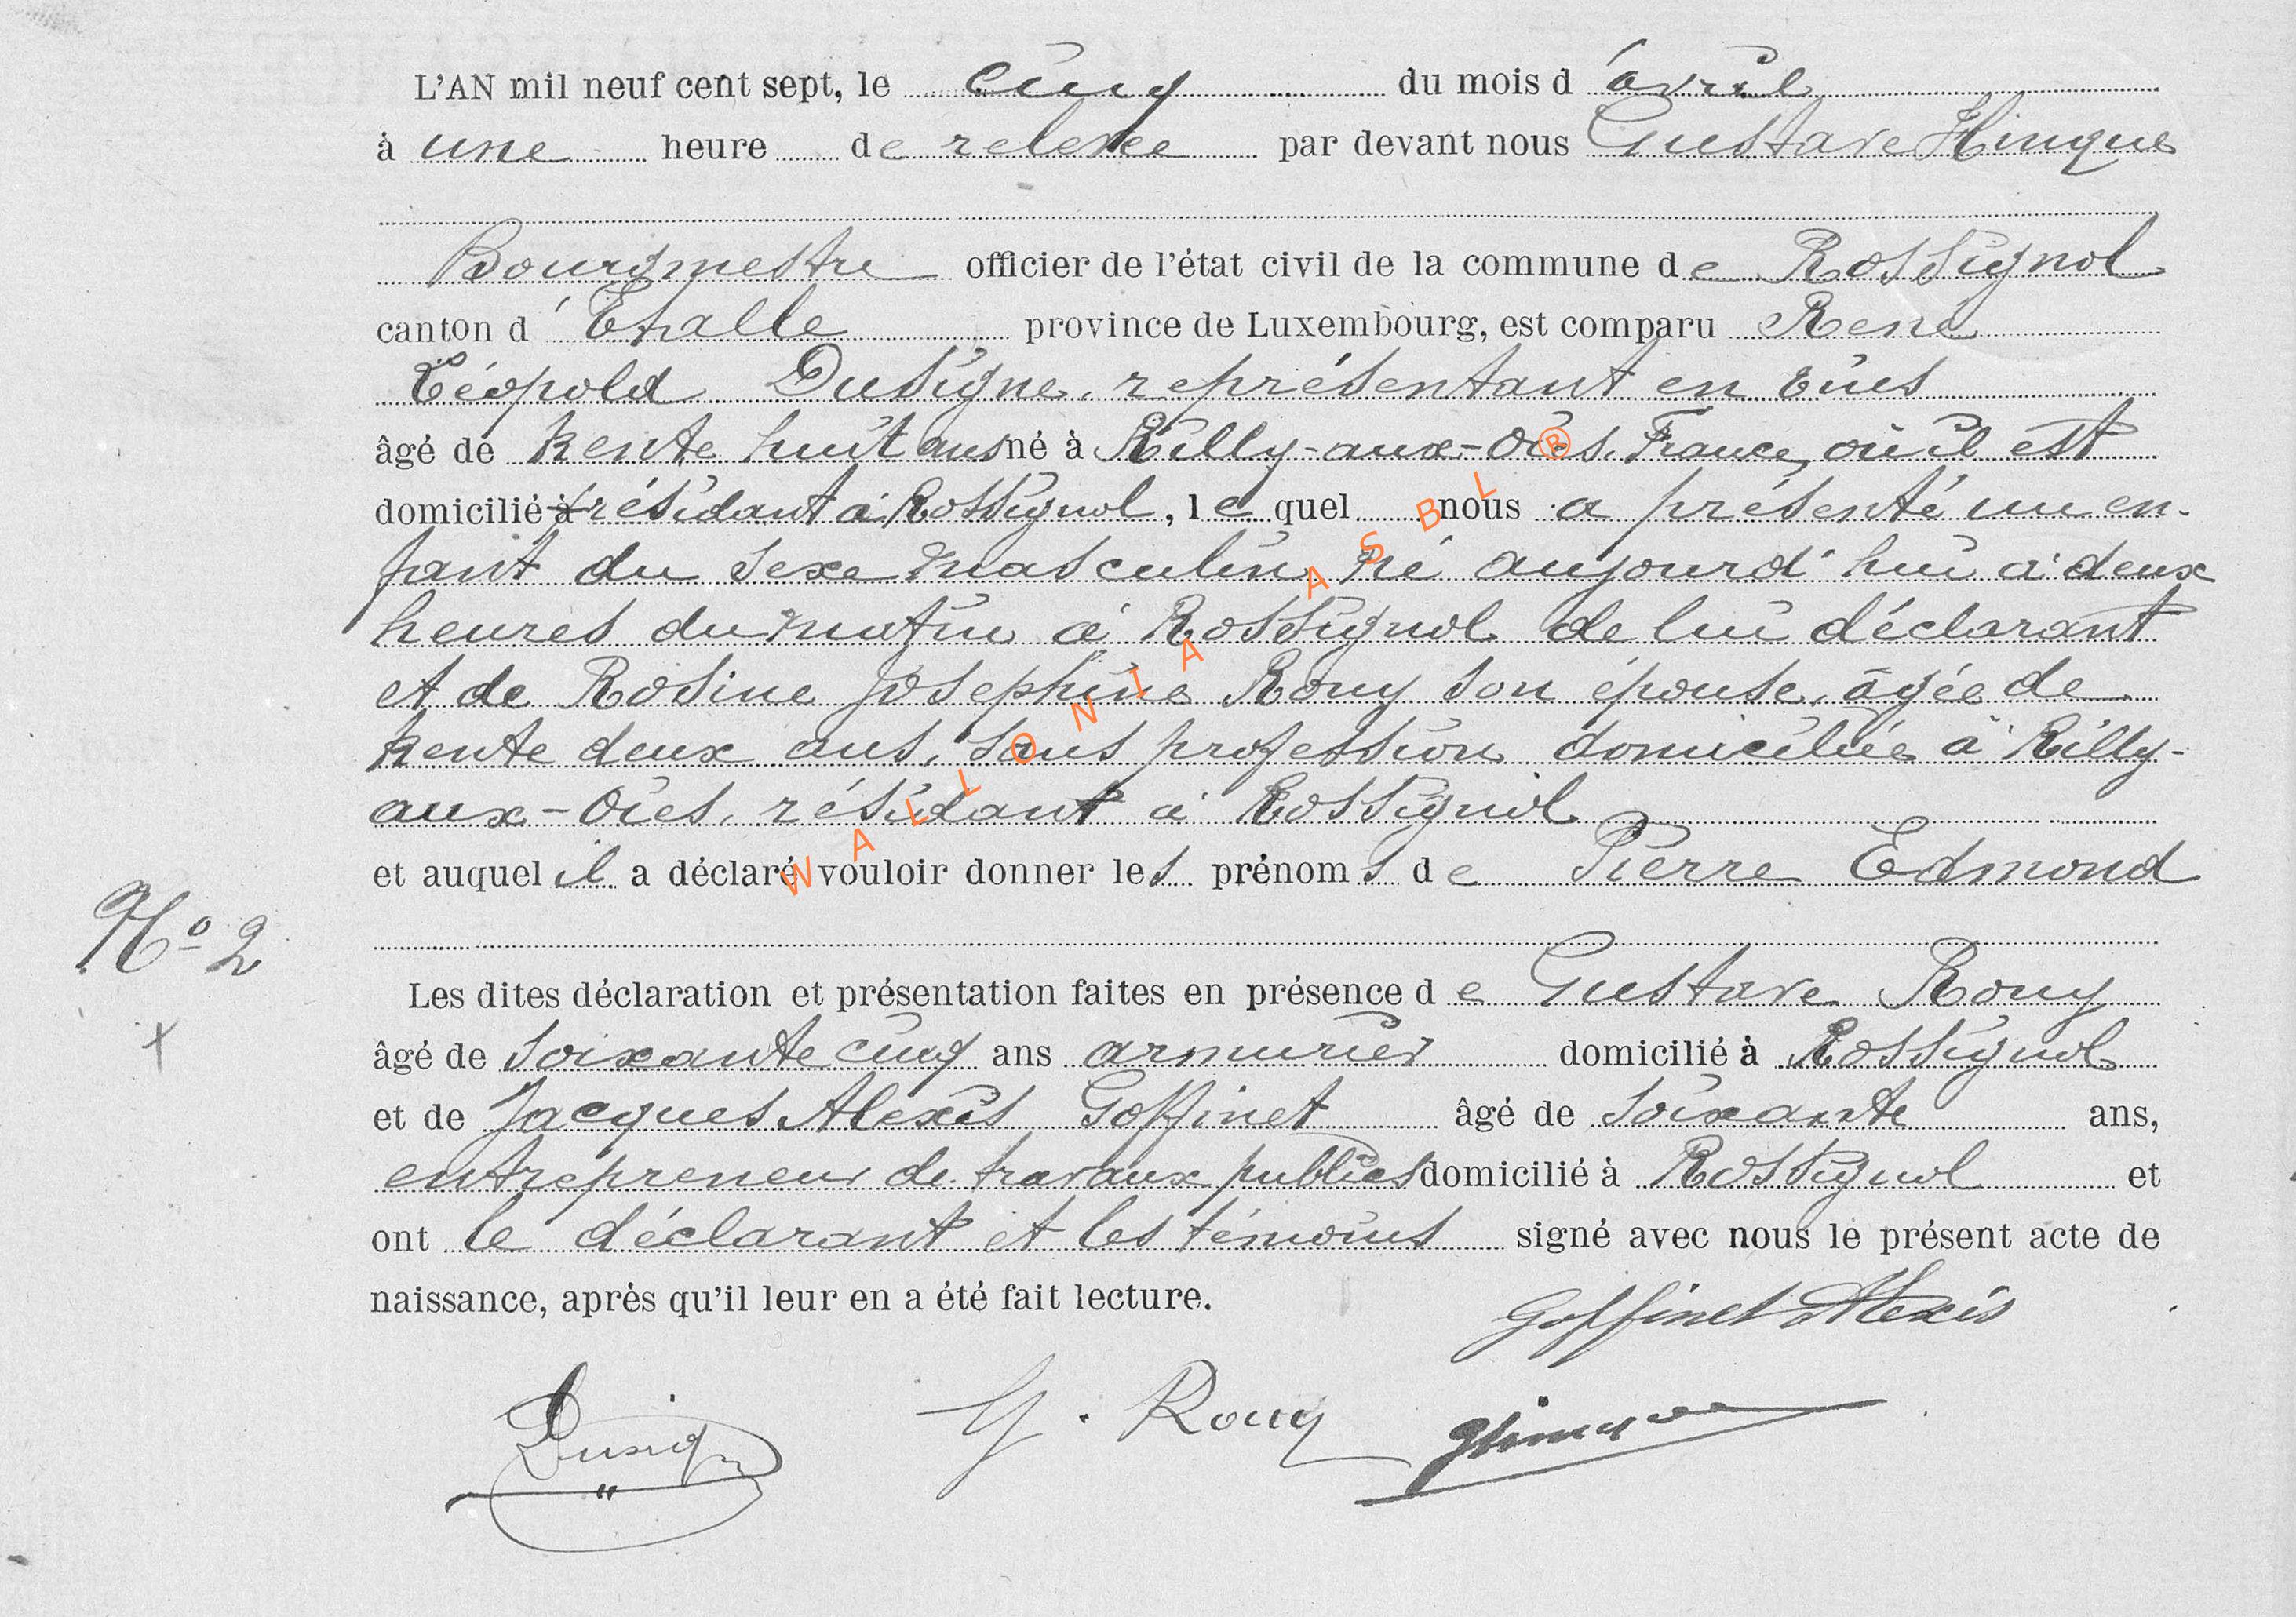 L'AN mil neuf cent sept, le cinq du mois d'avril
à une heure de relevée par devant nous Gustave Hinque
Bourgmestre officier de l'état civil de la commune de Rossignol
canton d'Etalle province de Luxembourg, est comparu René
Léopold Dusigne, représentant en vins
âgé de trente huit ans né à Rilly-aux-Oies, France, où il est
domicilié à résidant à Rossignol, lequel nous a présenté un en-
fant du sexe masculin, né aujourd'hui à deux
heures du matin à Rossignol de lui déclarant
et de Rosine Joséphine Rouy son épouse, âgée de
trente deux ans, sans profession domiciliée à Rilly-
aux-Oies, résidant à Rossignol
et auquel il a déclaré vouloir donner les prénoms de Pierre Edmond
No 2
Les dites déclaration et présentation faites en présence de Gustave Rouy
âgé de soixante cinq ans armurier domicilié à Rossignol
et de Jacques Alexis Goffinet âgé de soixante ans,
entrepreneur de travaux publics domicilié à Rossignol et
ont le déclarant et les témoins signé avec nous le présent acte de
naissance, après qu'il leur en a été fait lecture.
Goffinet Alexis
Dusigne G. Rouy GHinque
WALLONIA ASBL ®